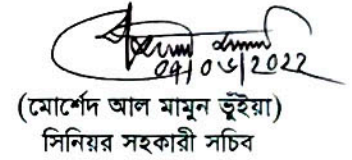 ০৭/০৬/2022
(মোর্শেদ আল মামুন ভূঁইয়া)
সিনিয়র সহকারী সচিব